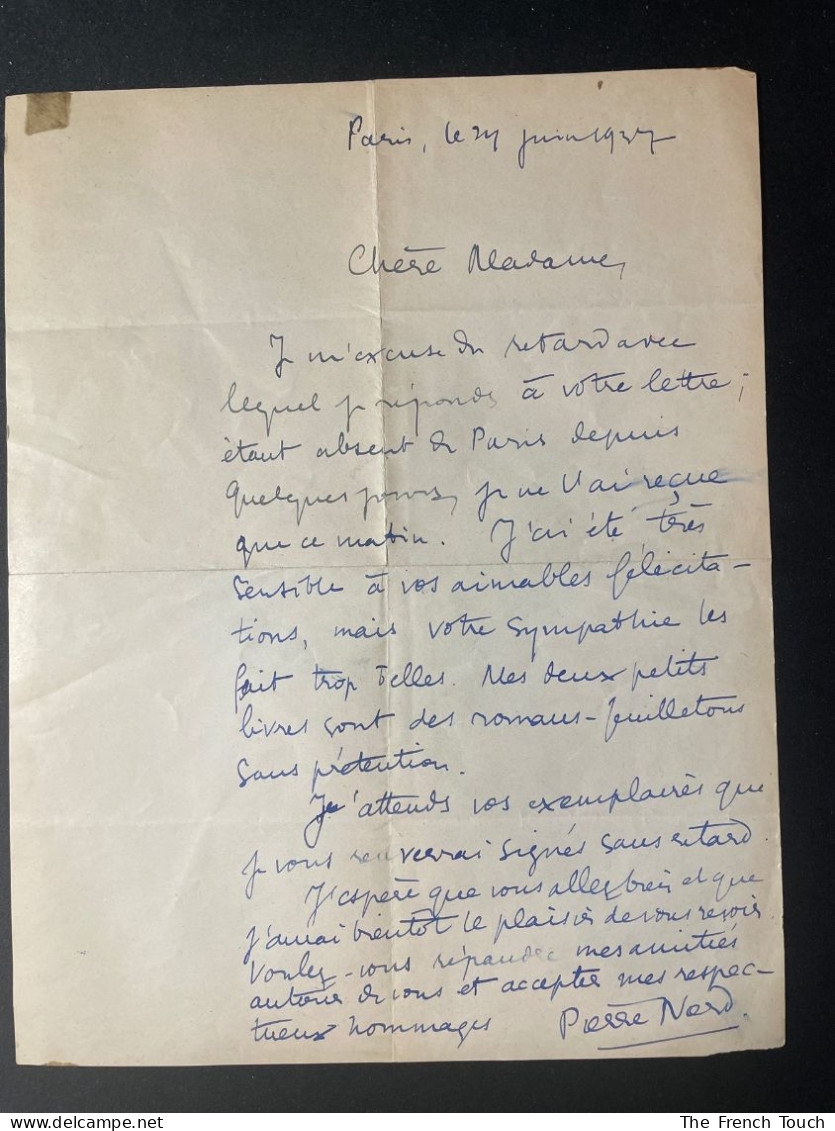 Paris, le 24 juin 1937
Chère Madame,
Je m'excuse du retard avec
lequel je réponds à votre lettre ;
étant absent de Paris depuis
quelques jours, je ne l'ai reçue
que ce matin. J'ai été très
sensible à vos aimables félicita-
tions, mais votre sympathie les
fait trop belles. Mes deux petits
livres sont des romans-feuilletons
sans prétention.
J'attends vos exemplaires que
je vous renverrai signés sans retard.
J'espère que vous allez bien et que
j'aurai bientôt le plaisir de vous revoir.
Voulez-vous répandre mes amitiés
autour de vous et accepter mes respec-
tueux hommages Pierre Nord.
The French Touch